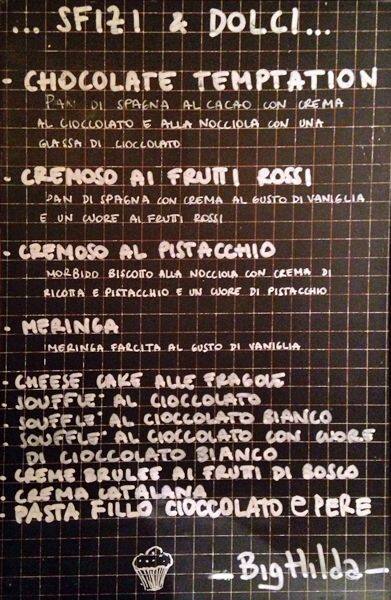 ... SFIZI & DOLCI...
- CHOCOLATE TEMPTATION
PAN DI SPAGNA AL CACAO CON CREMA
AL CIOCCOLATO E ALLA NOCCIOLA CON UNA
GLASSA DI CIOCCOLATO
- CREMOSO AI FRUTTI ROSSI
PAN DI SPAGNA CON CREMA AL GUSTO DI VANIGLIA
E UN CUORE AI FRUTTI ROSSI
- CREMOSO AL PISTACCHIO
MORBIDO BISCOTTO ALLA NOCCIOLA CON CREMA DI
RICOTTA E PISTACCHIO E UN CUORE DI PISTACCHIO
- MERINGA
MERINGA FARCITA AL GUSTO DI VANIGLIA
- CHEESE CAKE ALLE FRAGOLE
- SOUFFLE' AL CIOCCOLATO
- SOUFFLE' AL CIOCCOLATO BIANCO
- SOUFFLE' AL CIOCCOLATO CON CUORE
DI CIOCCOLATO BIANCO
- CREME BRULEE AI FRUTTI DI BOSCO
- CREMA CATALANA
- PASTA FILLO CIOCCOLATO E PERE
- BigHilda -